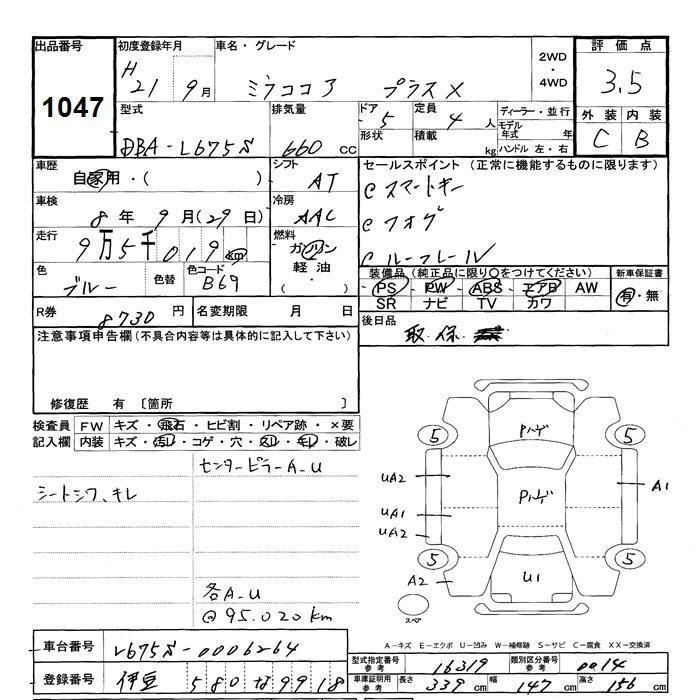 出品番号 初度登録年月 車名・グレード 2WD・4WD 評価点
1047 H 21 9月 ミラココア プラスX 3.5
型式 排気量 ドア 5 定員 4 人 ディーラー・並行 外装 内装
DBA-L675S 660 cc 形状 積載 kg モデル年式 年 ハンドル 左・右 C B
車歴 自家用・( ) シフト AT セールスポイント (正常に機能するものに限ります)
車検 8年 9月(29日) 冷房 AAC
走行 9万5千019km 燃料 ガソリン・軽油・( )
eスマートキー
eフォグ
ルーフレール
色 ブルー 色替 色コード B69
装備品(純正品に限り○をつけてください) 新車保証書
PS・PW・ABS・エアB・AW 有・無
SR ナビ TV カワ
R券 8730円 名変期限 月 日
後日品 取.保.
注意事項申告欄(不具合内容等は具体的に記入して下さい)
修復歴 有 〔箇所 〕
検査員 FW キズ・飛石・ヒビ割・リペア跡・×要
記入欄 内装 キズ・汚レ・コゲ・穴・スレ・キレ・破レ
センターピラーA-U
シートシワ、キレ
各A-U
@95.020km
5 Pハゲ 5
UA2 Pハゲ A1
UA1
UA2
5 5
A2 U1
スペア
A-キズ E-エクボ U-凹み W-補修跡 S-サビ C-腐食 XX-交換済
車台番号 L675S-0006264
型式指定番号 参考 16319 類別区分番号 参考 0014
登録番号 伊豆 580 な 9918
車庫証明用 参考 長さ 339cm 幅 147cm 高さ 156cm